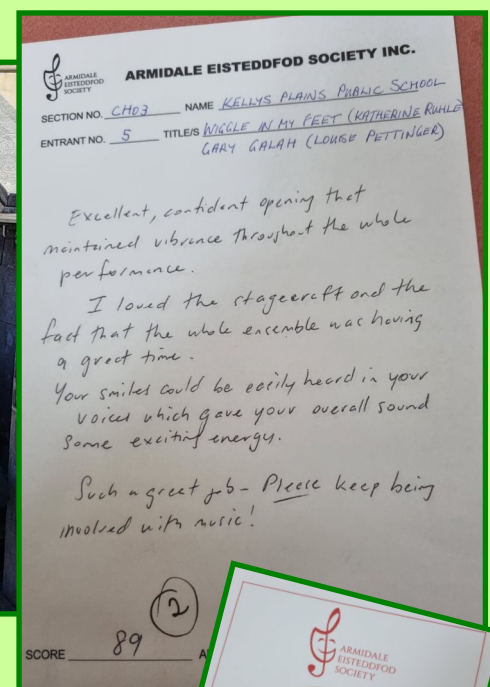 ARMIDALE
EISTEDDFOD
SOCIETY
ARMIDALE EISTEDDFOD SOCIETY INC.
SECTION NO. CH03 NAME KELLYS PLAINS PUBLIC SCHOOL
ENTRANT NO. 5 TITLE/S WIGGLE IN MY FEET (KATHERINE RUHLE)
GARY GALAH (LOUISE PETTINGER)
Excellent, confident opening that
maintained vibrance throughout the whole
performance.
I loved the stagecraft and the
fact that the whole ensemble was having
a great time.
Your smiles could be easily heard in your
voices which gave your overall sound
some exciting energy.
Such a great job - Please keep being
involved with music!
2
SCORE 89 A
ARMIDALE
EISTEDDFOD
SOCIETY